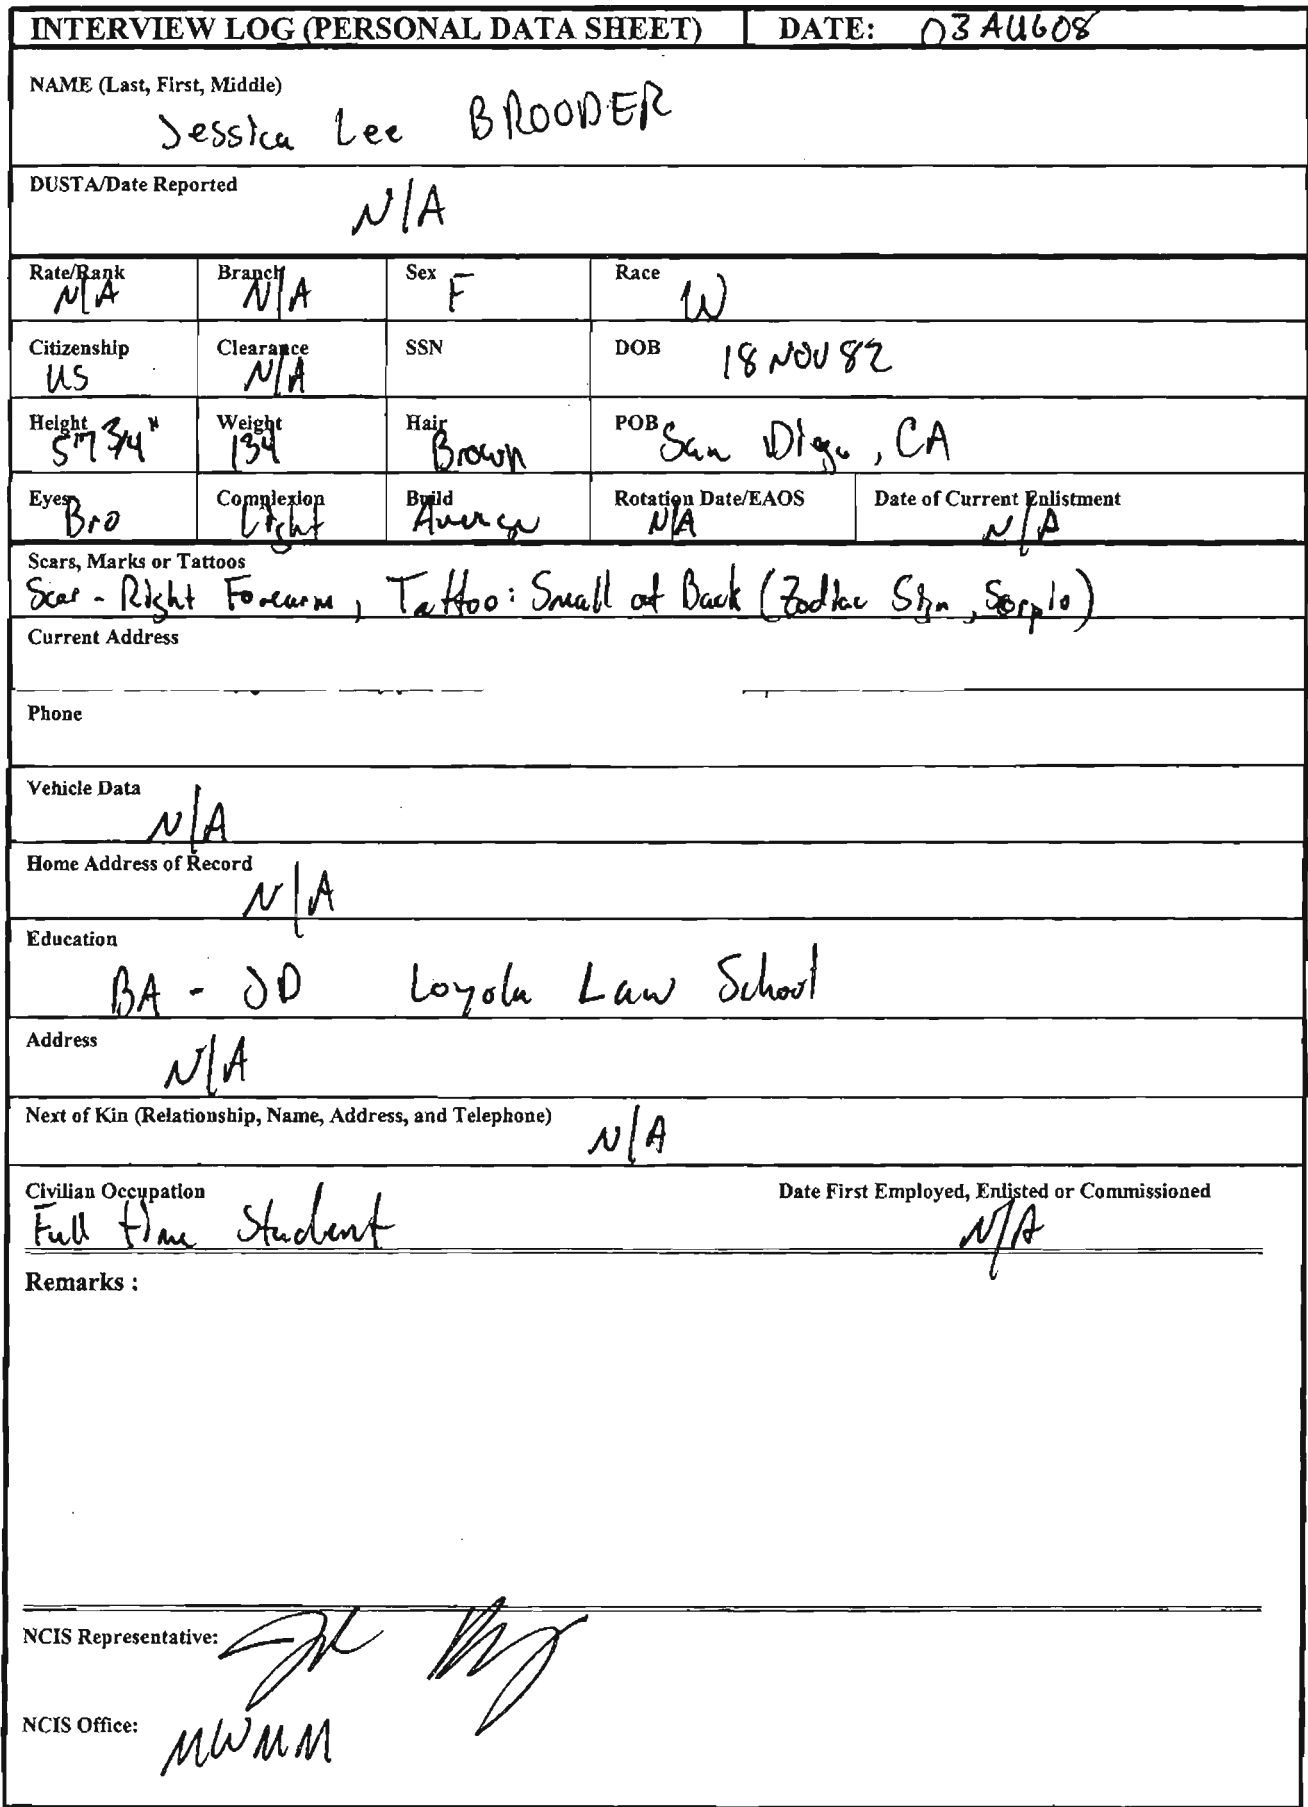 INTERVIEW LOG (PERSONAL DATA SHEET) DATE: 03 AUG 08
NAME (Last, First, Middle)
Jessica Lee BROODER
DUSTA/Date Reported
N/A
Rate/Rank Branch Sex Race
N/A N/A F W
Citizenship Clearance SSN DOB 18 NOV 82
US N/A
Height Weight Hair POB San Diego, CA
5'7 3/4" 134 Brown
Eyes Complexion Build Rotation Date/EAOS Date of Current Enlistment
Bro Light Average N/A N/A
Scars, Marks or Tattoos
Scar - Right Forearm, Tattoo: Small of Back (Zodiac Sign, Scorpio)
Current Address
Phone
Vehicle Data
N/A
Home Address of Record
N/A
Education
BA - JD Loyola Law School
Address
N/A
Next of Kin (Relationship, Name, Address, and Telephone) N/A
Civilian Occupation Date First Employed, Enlisted or Commissioned
Full time Student N/A
Remarks :
NCIS Representative:
NCIS Office: MWMM